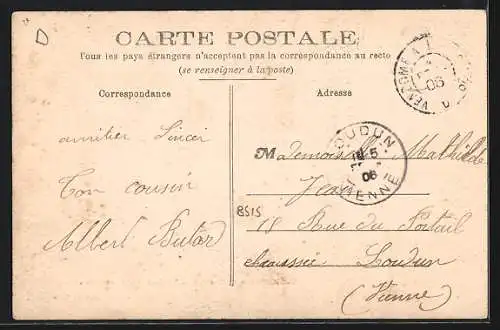 D
CARTE POSTALE
Tous les pays étrangers n'acceptent pas la correspondance au recto
(se renseigner à la poste)
Correspondance
Adresse
VENDOME A
06
LOUDUN
18-5
06
VIENNE
amitier Sincer
Ton cousin
Albert
Mademoiselle Mathilde
Jean
BS1S
18 Rue du Portail
chaussée Loudun
(Vienne)